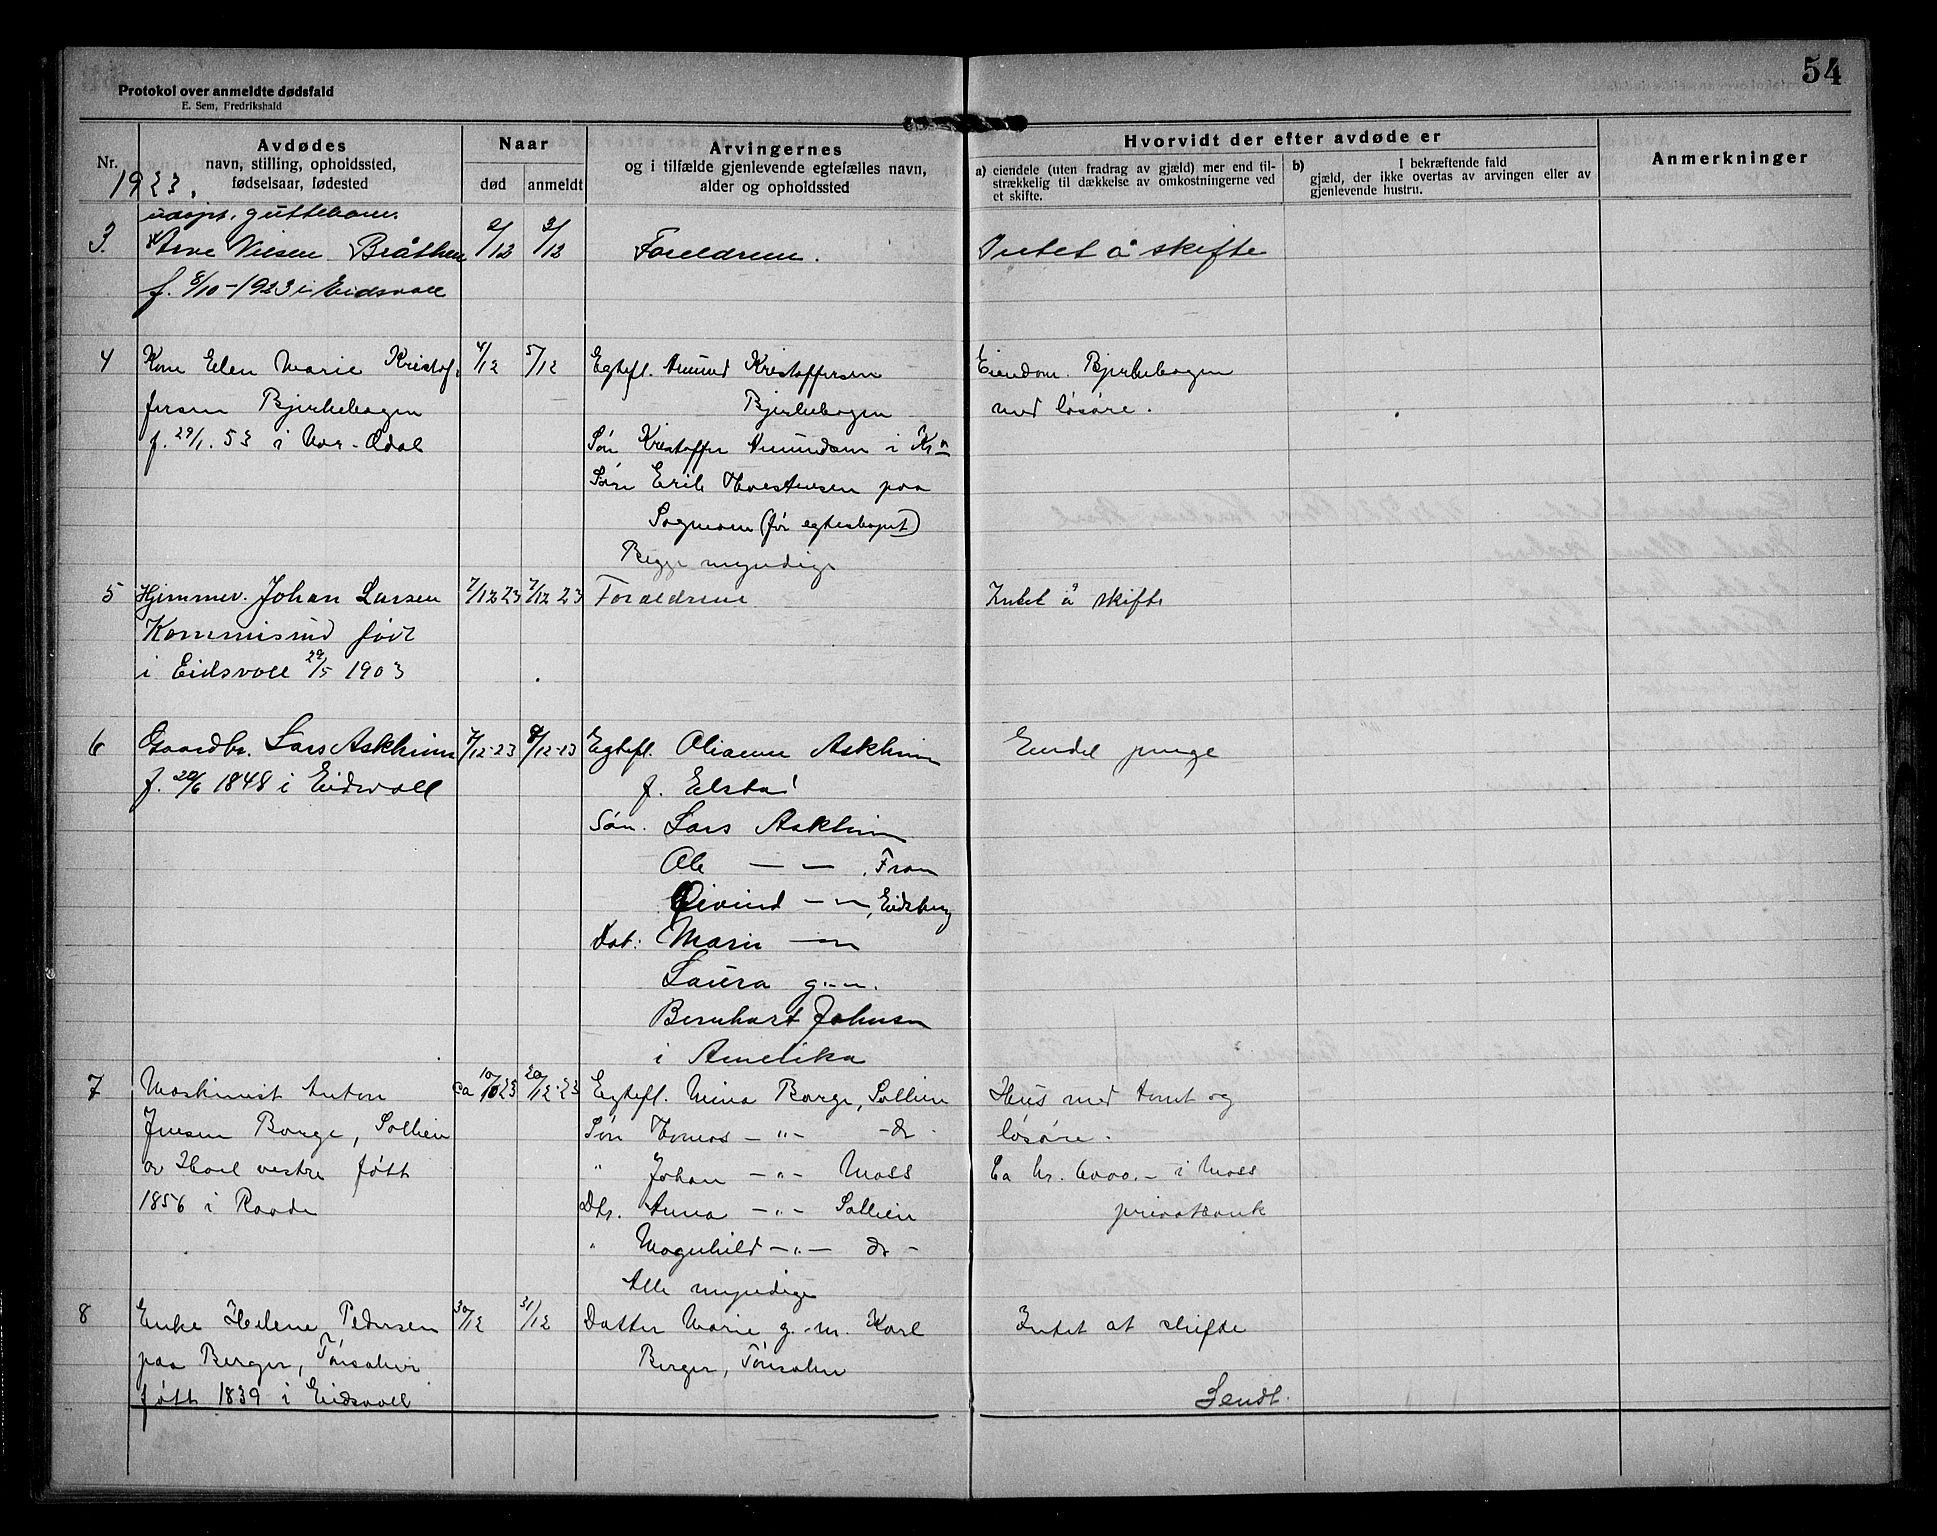 54
Protokol over anmeldte dødsfald
E. Sem, Fredrikshald
Nr.
Avdødes
navn, stilling, opholdssted,
fødselsaar, fødested
1923.
Naar
død
anmeldt
Arvingernes
og i tilfælde gjenlevende egtefælles navn,
alder og opholdssted
Hvorvidt der efter avdøde er
a) eiendele (uten fradrag av gjæld) mer end til-
strækkelig til dækkelse av omkostningerne ved
et skifte.
b) I bekræftende fald
gjæld, der ikke overtas av arvingen eller av
gjenlevende hustru.
Anmerkninger
guttebarn.
3. Arve Bråthen 2/12 3/12 Foreldrene. Intet å skifte
f. 8/10-1923 i Eidsvoll
4 Kone Elen Marie Kristof- 4/12 5/12 Egtefl. Amund Kristoffersen Eiendom Bjerkebagen
fersen Bjerkehagen Bjerkehagen med løsøre.
f. 29/1. 53 i Nor-Odal Søn Kristoffer Amundsen i Kr.a
Søn Erik Torstensen paa
Sogneom (før egteskapet)
Begge myndige
5 Hjemmev. Johan Larsen 7/12 23 7/12 23 Foreldrene Intet å skifte
Kommisrud født
i Eidsvoll 29/5 1903
6 Gaardbr. Lars Askheim 7/12-23 8/12-23 Egtefl. Oliane Askheim Endel penge
f. 20/6 1848 i Eidsvoll f. Elstad
Søn. Lars Askheim
Ole — — , Fron
Øivind — — , Eidsberg
Dat: Marie — —
Laura g. m.
Bernhart Johnsen
i Amerika
7 Maskinist Anton ca 10/10 23 20/12-23 Egtefl. Mina Borge, Sollien Hus med tomt og
Jensen Borge, Sollien Søn Tomas — " — do løsøre.
av Hoel vestre født " Johan — " — Moss Ca kr. 6000.- i Moss
1856 i Raade Dtr. Anna — " — Sollien privatbank
" Magnhild — " — do —
Alle myndige
8 Enke Helene Pedersen 30/12 31/12 Datter Marie g. m. Karl Intet at skifte
paa Berger, Tørsalm Berger, Tørsalm
født 1839 i Eidsvoll Sendt.